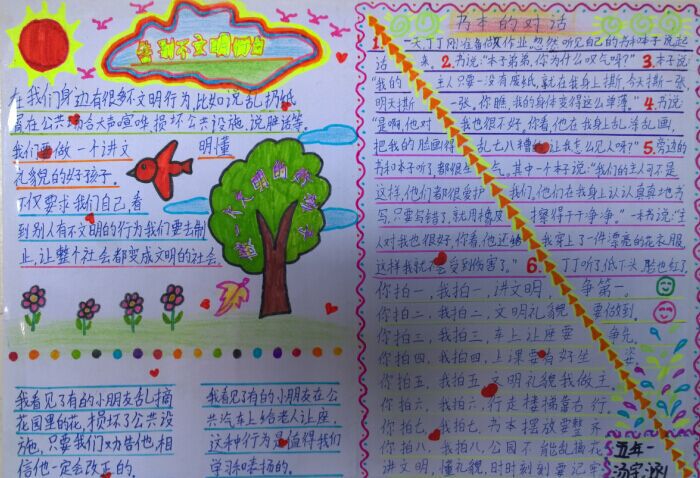 告别不文明
在我们身边有很多不文明行为,比如说乱扔纸
在公共场合大声喧哗,损坏公共设施,说脏话等。
我们要做一个讲文明懂
礼貌的好孩子。
不仅要求我们自己,看
到别人有不文明的行为我们要去制
止,让整个社会都变成文明的社会。
我看见了有的小朋友乱摘
花园里的花,损坏了公共设
施,只要我们劝告他,相
信他一定会改正的。
我看见了有的小朋友在公
共汽车上给老人让座,
这种行为是值得我们
学习和表扬的。
书本的对话
1. 一天,丁丁刚准备做作业,忽然听见自己的书和本子说起
话来。2. 书说:“本子弟弟,你为什么叹气呀?”3. 本子说:
“我的主人只要一没有废纸,就在我身上撕,今天撕一张,
明天撕一张,你瞧,我的身体变得这么单薄。”4. 书说:
“是啊,他对我也很不好,你看,他在我身上乱涂乱画,
把我的脸画得乱七八糟的,让我怎么见人呀?”5. 旁边的
书和本子听了,都很生气。其中一个本子说:“我们的主人可不是
这样,他们都很爱护我们。他们在我身上认认真真地书
写,只要写错了,就用橡皮擦得干干净净。”一本书说:“主
人对我也很好,你看,他还给我穿上了一件漂亮的花衣服,
这样我就不会受到伤害了。”6. 丁丁听了,低下头,脸也红了。
你拍一,我拍一,讲文明,争第一。
你拍二,我拍二,文明礼貌要做到。
你拍三,我拍三,车上让座要争先。
你拍四,我拍四,上课要有好坐姿。
你拍五,我拍五,文明礼貌我做主。
你拍六,我拍六,行走楼梯靠右行。
你拍七,我拍七,书本摆放要整齐
你拍八,我拍八,公园不能乱摘花
讲文明,懂礼貌,时时刻刻要记牢
五年一